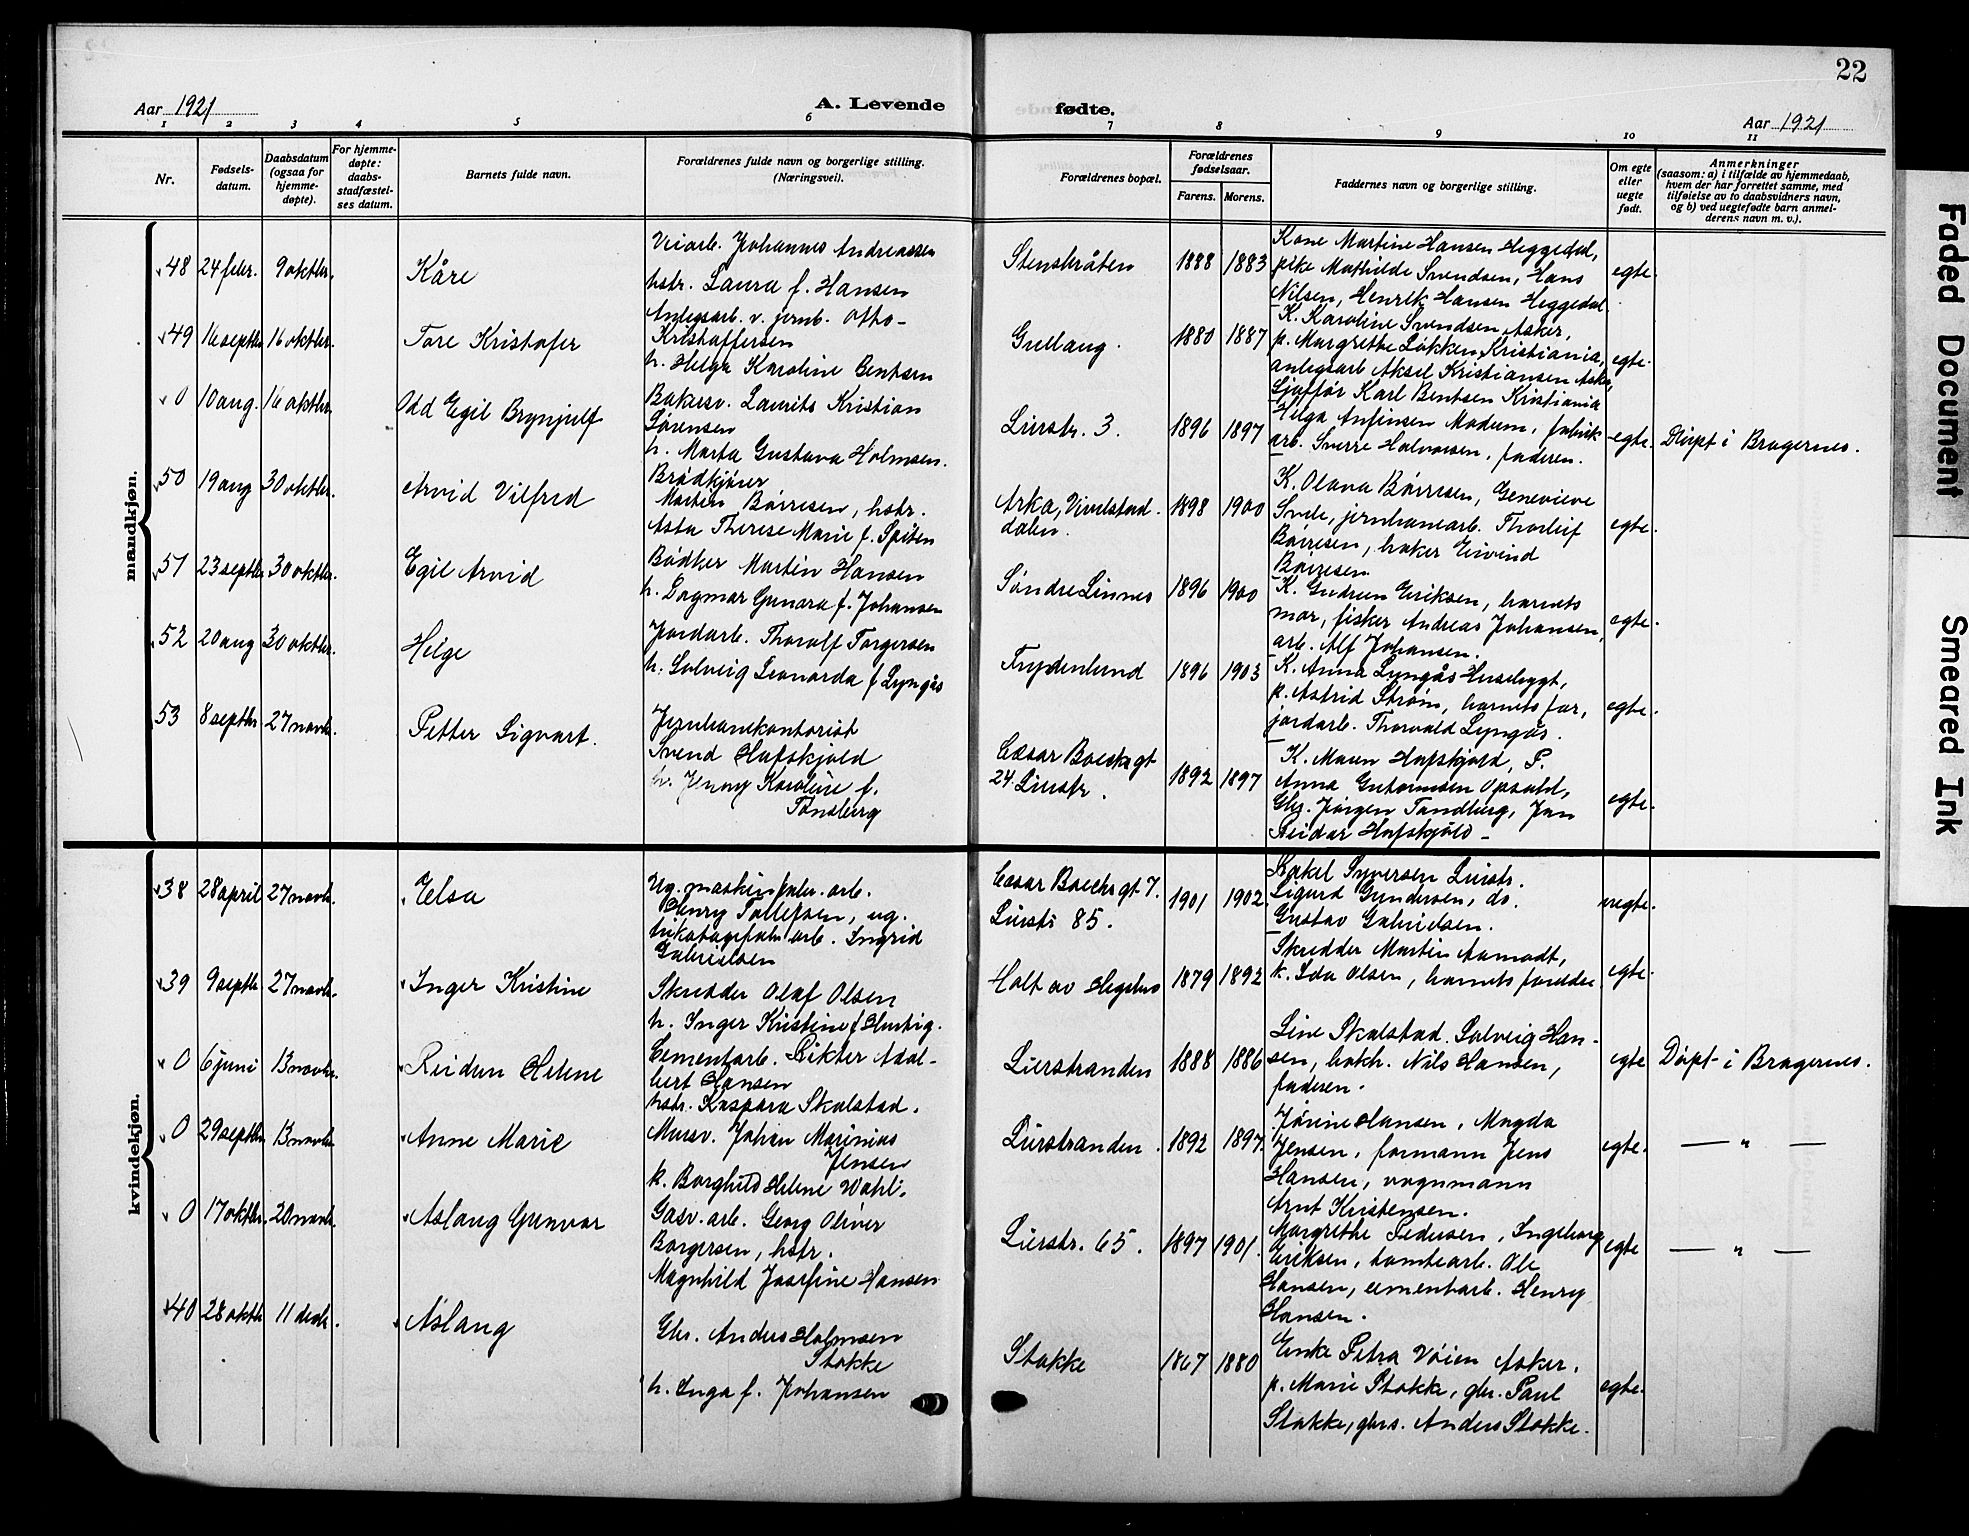 22
Aar 1921
A. Levende
fødte.
Aar 1921
1 2 3 4 5 6 7 8 9 10 11
Nr.
Fødsels-
datum.
Daabsdatum
(ogsaa for
hjemme-
døpte).
For hjemme-
døpte:
daabs-
stadfæstel-
ses datum.
Barnets fulde navn.
Forældrenes fulde navn og borgerlige stilling.
(Næringsvei).
Forældrenes bopæl.
Forældrenes
fødselsaar.
Farens. Morens.
Faddernes navn og borgerlige stilling.
Om egte
eller
uegte
født.
Anmerkninger
(saasom: a) i tilfælde av hjemmedaab,
hvem der har forrettet samme, med
tilføielse av to daabsvidners navn,
og b) ved uegtefødte barn anmel-
derens navn m. v.).
mandkjøn.
48 24 febr. 9 oktbr. Kåre
Veiarb. Johannes Andreassen
hstr. Laura f. Hansen
Stensbråten 1888 1883
Kone Martine Hansen Heggedal,
pike Mathilde Svendsen, Hans
Nilsen, Henrik Hansen Heggedal
egte.
49 16 septbr. 16 oktbr. Tore Kristofer
Anlegsarb. v. jernb. Otto
Kristoffersen
h. Helga Karoline Bentsen
Gullaug. 1880 1887
K. Karoline Svendsen Asker,
p. Margrethe Løkken, Kristiania,
anlegsarb Aksel Kristiansen Asker
Sjaffør Karl Bentsen Kristiania
egte.
0 10 aug. 16 oktbr. Odd Egil Brynjulf
Bakersv. Laurits Kristian
Sørensen
h. Marta Gustava Holmsen.
Lierstr. 3. 1896 1897
Helga Anfinsen Modum, fabrik
arb. Sverre Halvorsen, faderen.
egte. Døpt i Bragernes.
50 19 aug 30 oktbr. Arvid Vilfred
Brødkjører
Martin Børresen, hstr.
Asta Therese Marie f. Spiten
Arka, Vivelstad
dalen. 1898 1900
K. Olava Børresen, Genevieve
jernbanearb. Thorleif
Børresen, baker Eivind
Børresen
egte.
51 23 septbr 30 oktbr. Egil Arvid
Bødker Martin Hansen
h. Dagmar Gunara f. Johansen
Søndre Linnes 1896 1900
K. Gudrun Eriksen, barnets
mor, fisker Andreas Johansen,
arb. Alf Johansen.
egte.
52 20 aug 30 oktbr. Helge
Jordarb. Thorolf Torgersen
h. Solveig Leonarda f Lyngås
Frydenlund 1896 1903
K. Anna Lyngås Husebygt,
p. Astrid Strøm, barnets far,
jordarb. Thorvald Lyngås.
egte.
53 8 septbr 27 novbr. Petter Sigvart.
Jernbanekontorist
Svend Hafskjold
h. Jenny Karoline f.
Tønsberg
Cæsar Boecks gt
24 Lierstr. 1892 1897
K. Hafskjold, P.
Anna Gutormsen Opsahl,
Gbr. Jørgen Tandberg, Jan
Reidar Hafskjold
egte.
kvindekjøn.
38 28 april 27 novbr. Elsa
Ug. maskinfabr. arb.
Henry Tollefsen, ug.
trikotagefabr arb. Ingrid
Gabrielsen
Cæsar Boecks gt 7.
Lierstr 85. 1901 1902
Rakel Syversen Lierstr.
Sigurd Gundersen, do.
Gustav Gabrielsen.
uegte.
39 9 septbr 27 novbr. Inger Kristine
Skredder Olaf Olsen
h. Inger Kristine f Hurtig.
Holt av Hegsbro 1879 1892
Skredder Martin Aamodt,
k. Ida Olsen, barnets foreldre
egte.
0 6 juni 13 novbr. Reidun Helene
Cementarb. Rikter Adal-
bert Hansen
hstr. Kaspara Skalstad.
Lierstranden 1888 1886
Line Skalstad. Solveig Han-
sen, bokh. Nils Hansen,
faderen.
egte Døpt i Bragernes.
0 29 septbr 13 novbr. Anne Marie
Mursv. Johan Marinius
Jensen
k. Borghild Helene Wahl.
Lierstranden. 1892 1897
Jørine Hansen, Magda
Jensen, formann Jens
Hansen, vognmann
Arnt Kristensen.
egte. — „ —
0 17 oktbr. 20 novbr. Aslaug Gunvor
Gasv. arb. Georg Oliver
Borgersen, hstr.
Magnhild Josefine Hansen
Lierstr. 65. 1897 1901.
Margrethe Pedersen, Ingeborg
Eriksen, tomtearb. Ole
Hansen, cementarb. Henry
Hansen.
egte — „ —
40 28 oktbr 11 decbr. Aslaug
Gbr. Anders Holmsen
Stokke
h. Inga f. Johansen
Stokke 1867 1880
Enke Petra Vøien Asker,
p. Marie Stokke, gbr. Paul
Stokke, gbrs. Anders Stokke.
egte.
Faded Document
Smeared Ink